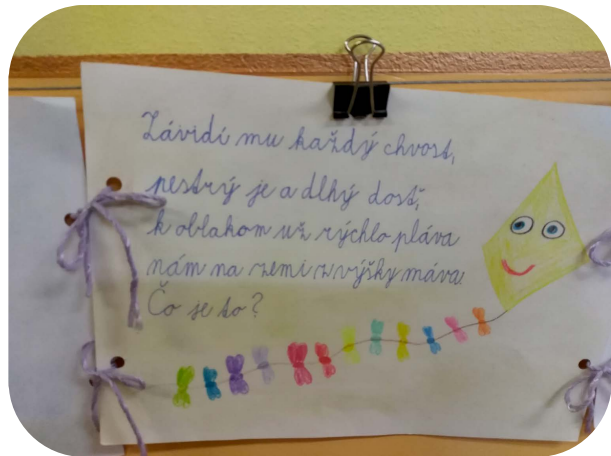 Závidí mu každý chvost,
pestrý je a dlhý dosť,
k oblakom už rýchlo pláva
nám na zemi z výšky máva.
Čo je to?